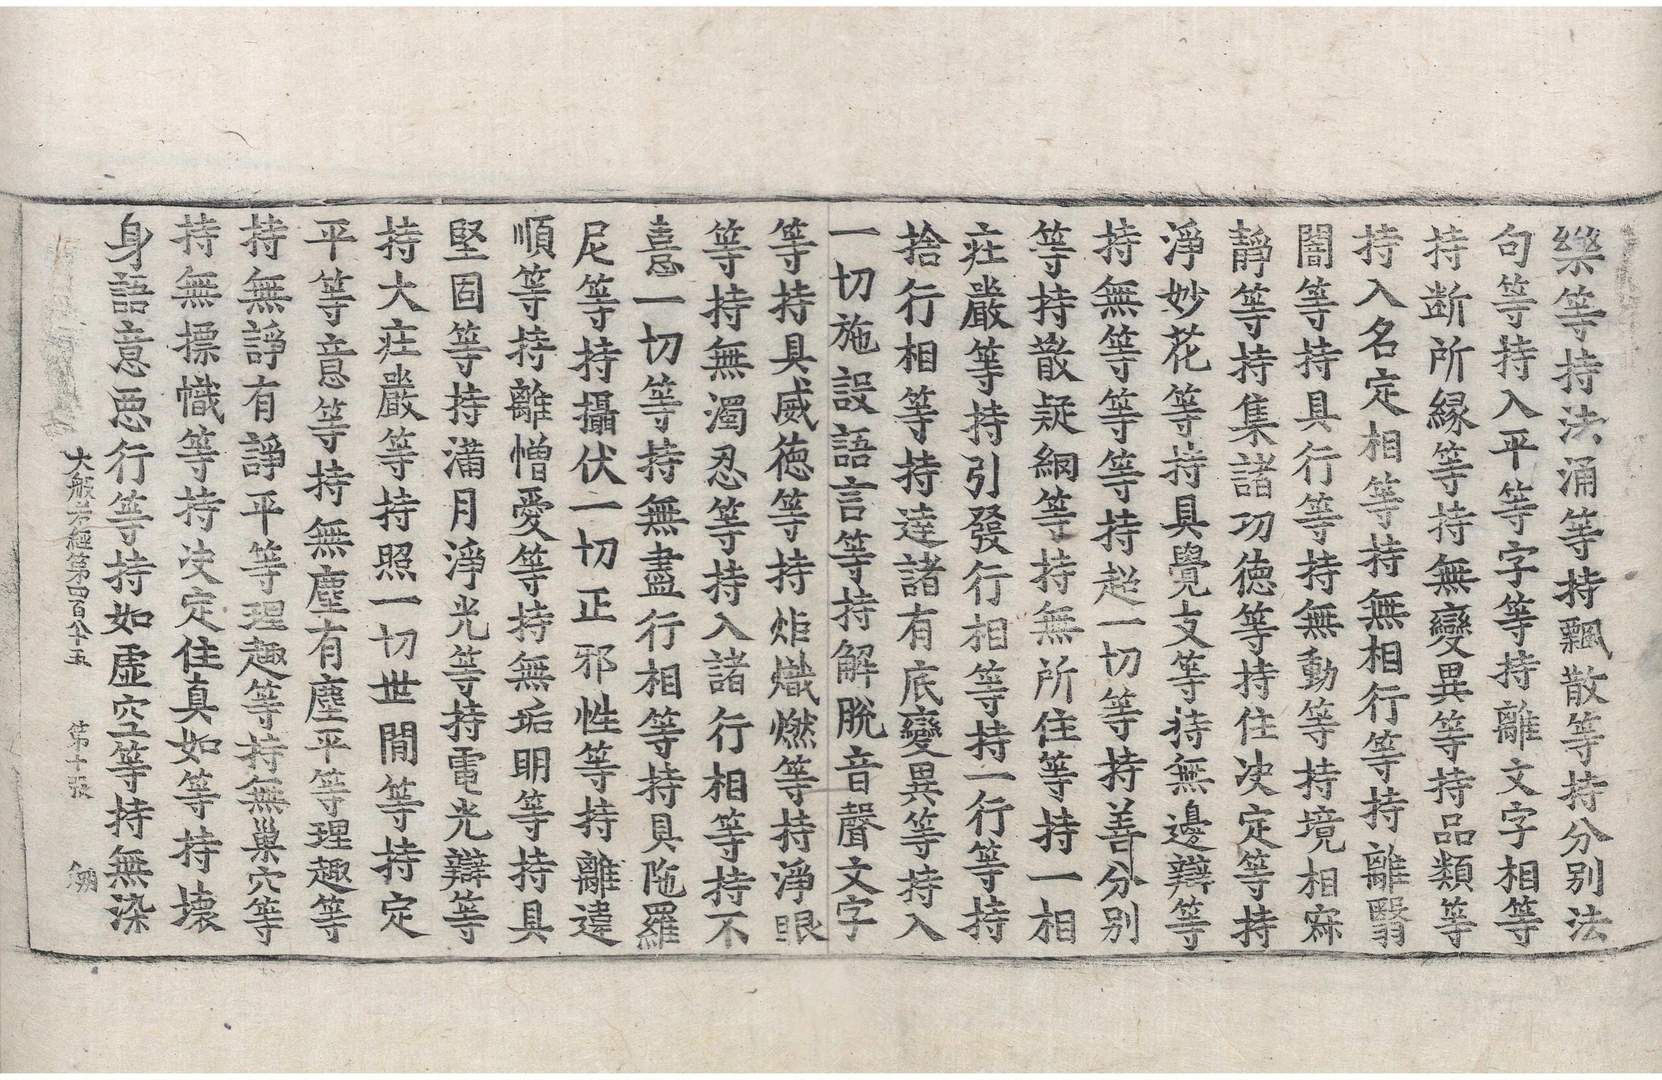 樂等持法涌等持飄散等持分別法
句等持入平等字等持離文字相等
持断所縁等持無變異等持品類等
持入名定相等持無相行等持離翳
闇等持具行等持無動等持境相寂
靜等持集諸功德等持住决定等持
淨妙花等持具覺支等持無邊辯等
持無等等等持超一切等持善分別
等持散疑網等持無所住等持一相
莊嚴等持引發行相等持一行等持
捨行相等持達諸有底變異等持入
一切施設語言等持解脫音聲文字
等持具威德等持炬熾燃等持淨眼
等持無濁忍等持入諸行相等持不
憙一切等持無盡行相等持具陁羅
尼等持攝伏一切正邪性等持離違
順等持離憎愛等持無垢明等持具
堅固等持滿月淨光等持電光辯等
持大莊嚴等持照一切世間等持定
平等意等持無塵有塵平等理趣等
持無諍有諍平等理趣等持無巢穴等
持無摽幟等持决定住真如等持壞
身語意惡行等持如虛空等持無染
大般若經第四百八十五 第十張 翔